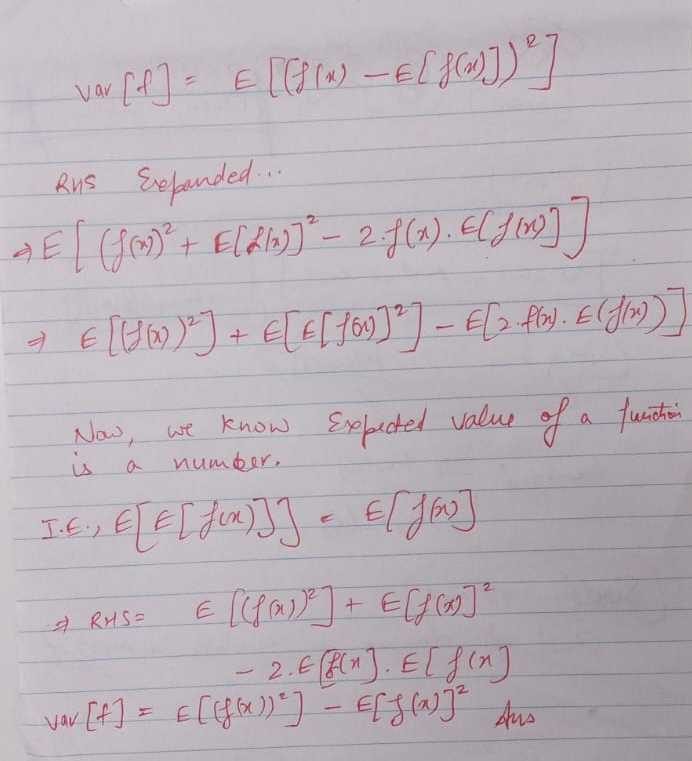 var [f] = E [(f(x) - E[f(x)])²]
RHS Expanded...
⇒ E [ (f(x))² + E[f(x)]² - 2.f(x). E[f(x)] ]
⇒ E [(f(x))²] + E[E[f(x)]²] - E[2.f(x). E(f(x))]
Now, we know Expected value of a function
is a number.
I.E., E[E[f(x)]] = E[f(x)]
⇒ RHS = E [(f(x))²] + E[f(x)]²
- 2.E[f(x)]. E[f(x)]
var [f] = E[(f(x))²] - E[f(x)]² Ans